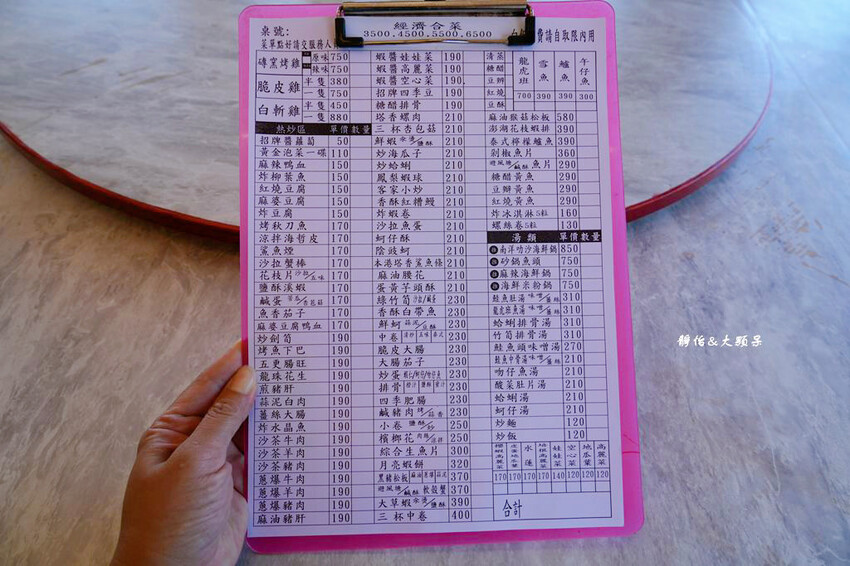 桌號:
經濟合菜
3500.4500.5500.6500
費請自取限內用
菜單點好請交服務人
磚窯烤雞 原味 750
辣味 750
脆皮雞 半隻 380
一隻 750
白斬雞 半隻 450
一隻 880
熱炒區 單價 數量
招牌醬蘿蔔 50
黃金泡菜一碟 110
麻辣鴨血 150
炸柳葉魚 150
紅燒豆腐 150
麻婆豆腐 150
炸豆腐 150
烤秋刀魚 170
涼拌海哲皮 170
鯊魚煙 170
沙拉蟹棒 170
花枝片 沙拉/五味 170
鹽酥溪蝦 170
鹹蛋 苦瓜/杏苞菇 170
魚香茄子 170
麻婆豆腐鴨血 170
炒劍筍 190
烤魚下巴 190
五更腸旺 190
龍珠花生 190
煎豬肝 190
蒜泥白肉 190
薑絲大腸 190
炸水晶魚 190
沙茶牛肉 190
沙茶羊肉 190
沙茶豬肉 190
蔥爆牛肉 190
蔥爆羊肉 190
蔥爆豬肉 190
麻油豬肝 190
蝦醬娃娃菜 190
蝦醬高麗菜 190
蝦醬空心菜 190
招牌四季豆 190
糖醋排骨 190
塔香螺肉 210
三杯杏包菇 210
鮮蝦 水燙/鹽酥 210
炒海瓜子 210
炒蛤蜊 210
鳳梨蝦球 210
客家小炒 210
香酥紅糟鰻 210
炸蝦卷 210
沙拉魚蛋 210
蚵仔酥 210
陰豉蚵 210
本港塔香鯊魚條 210
麻油腰花 210
蛋黃芋頭酥 210
綠竹筍 沙拉/鹹蛋 230
香酥白帶魚 230
鮮蚵 蒜泥/豆酥 230
中卷 清炒 五味 泰式 230
脆皮大腸 230
大腸茄子 230
炒蛋 230
排骨 椒鹽 230
四季肥腸 230
鹹豬肉 烤/蒜香 230
小卷 鹽酥/炒 250
檳榔花 250
綜合生魚片 300
月亮蝦餅 320
黑豬松板 370
避風塘/鹹酥 軟殼蟹 370
大草蝦 水燙/鹽酥 390
三杯中卷 400
清蒸
糖醋
豆瓣
紅燒
豆酥
龍虎班 700
雪魚 390
鱸魚 390
午仔魚 300
麻油猴菇松板 580
澎湖花枝蝦排 390
泰式檸檬鱸魚 390
剁椒魚片 360
避風塘/鹹酥 魚片 290
糖醋黃魚 290
豆瓣黃魚 290
紅燒黃魚 290
炸冰淇淋5粒 160
螺絲卷5粒 130
湯類 單價 數量
南洋叻沙海鮮鍋 850
砂鍋魚頭 750
麻辣海鮮鍋 750
海鮮米粉鍋 750
鮭魚肚湯 味噌/薑絲 310
龍虎班魚湯 味噌/薑絲 310
蛤蜊排骨湯 310
竹筍排骨湯 310
鮭魚頭味噌湯 270
鮭魚中骨湯 味噌/薑絲 210
吻仔魚湯 210
酸菜肚片湯 210
蛤蜊湯 210
蚵仔湯 210
炒麵 120
炒飯 120
櫻蝦高麗菜 170
170
水蓮 170
培根高麗菜 170
娃娃菜 140
空心菜 120
地瓜葉 120
高麗菜 120
合計